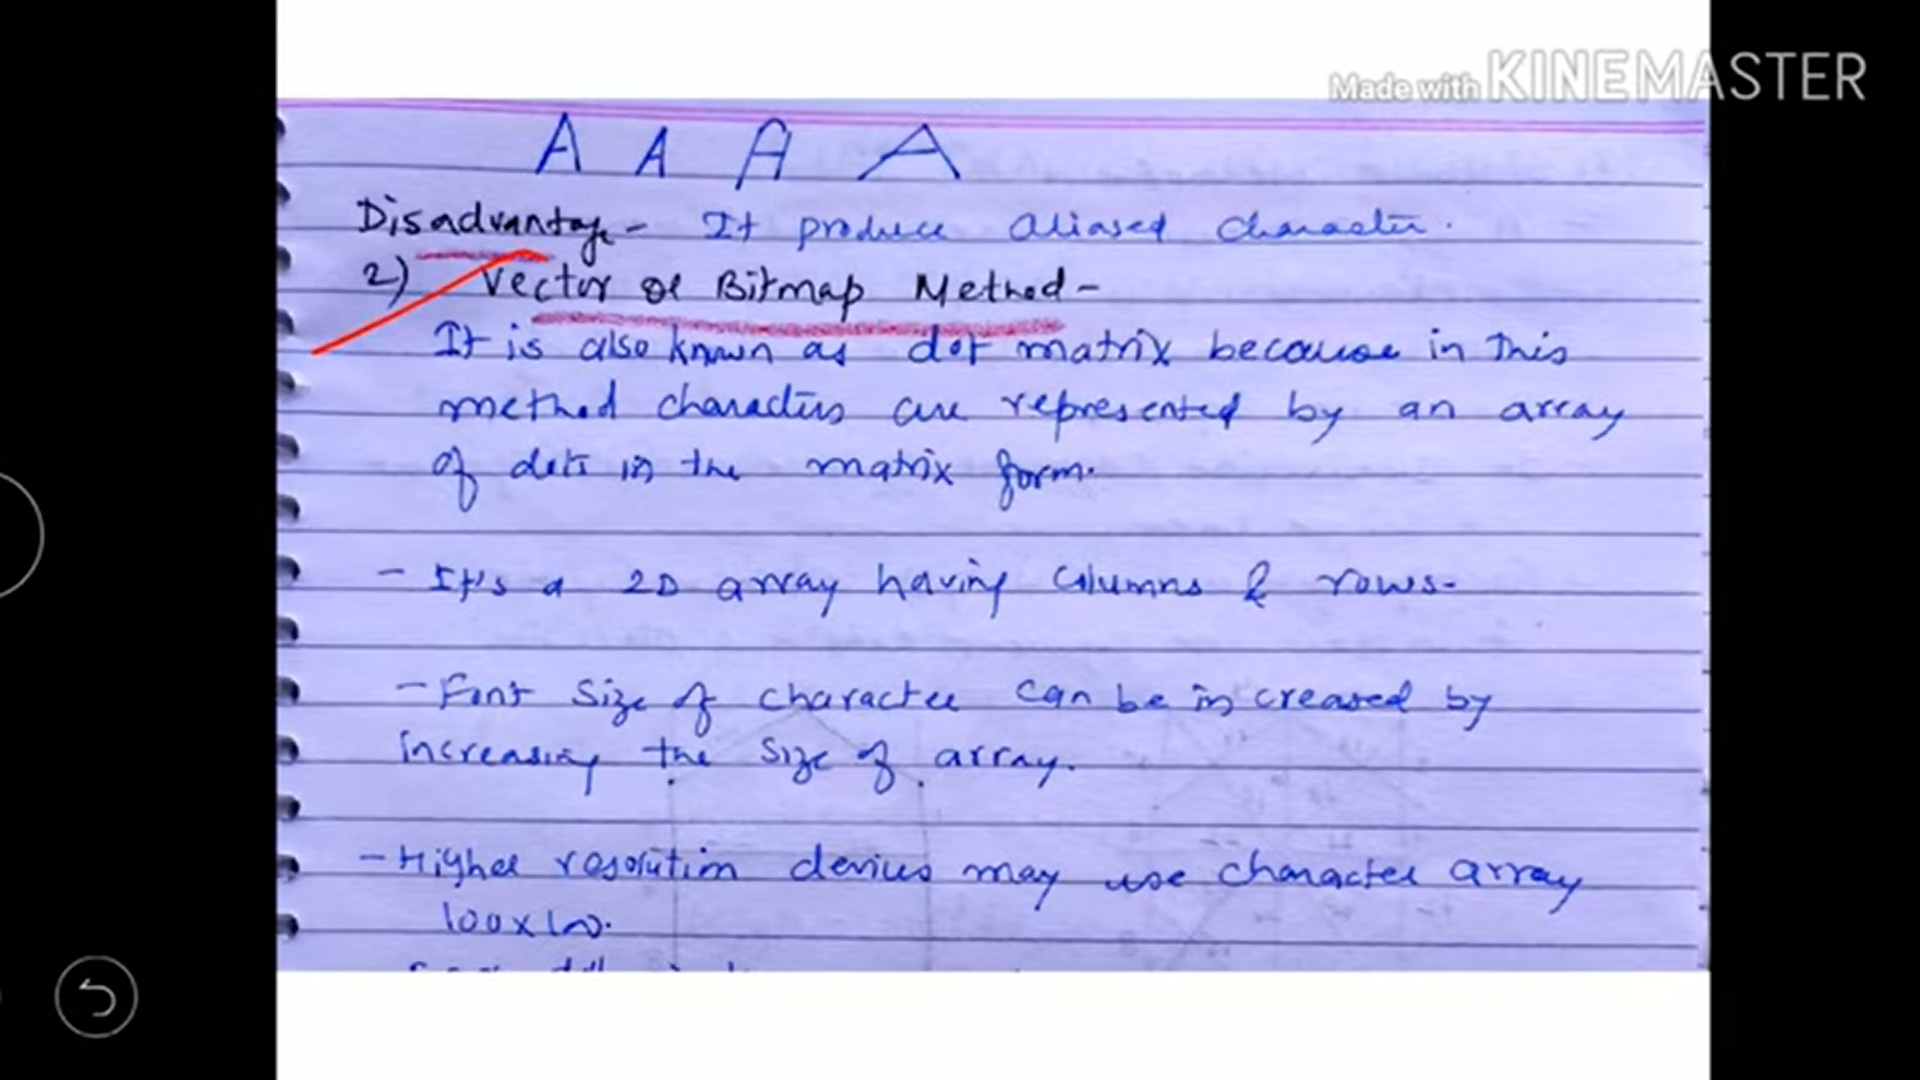 Made with KINEMASTER
A A A A
Disadvantage - It produce aliased character.
2) Vector or Bitmap Method -
It is also known as dot matrix because in this
method characters are represented by an array
of dots in the matrix form.
- It's a 2D array having columns & rows.
- Font size of character can be increased by
increasing the size of array.
- Higher resolution devices may use character array
100x100.